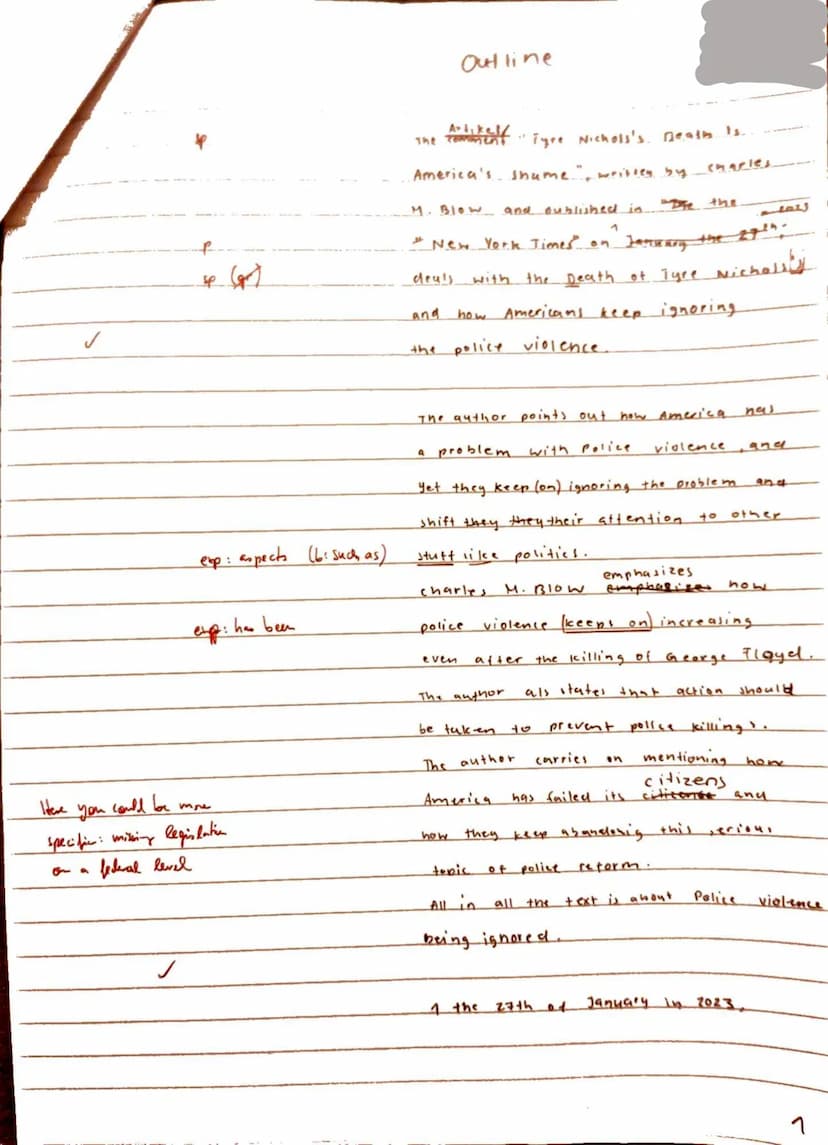 Outline
sp The Artikel/ comment "Tyre Nichols's Death Is
America's Shame", written by Charles
M. Blow and published in "The the
p "New York Times" on 1 January the 27th,
sp (gr) deals with the Death of Tyre Nichols's
and how Americans keep ignoring
✓ the police violence.
The author points out how America has
a problem with Police violence, and
yet they keep (on) ignoring the problem and
shift they they their attention to other
exp: aspects (b: such as) stuff like politics.
Charles M. Blow emphasizes emphasizes how
exp: has been police violence (keeps on) increasing
even after the killing of George Floyd.
The author als states that action should
be taken to prevent police killings.
The author carries on mentioning how
Here you could be more America has failed its citizens and
specific: missing legislation how they keep abandonig this serious
on a federal level topic of police reform.
All in all the text is about Police violence
being ignored.
✓
1 the 27th of January in 2023.
1